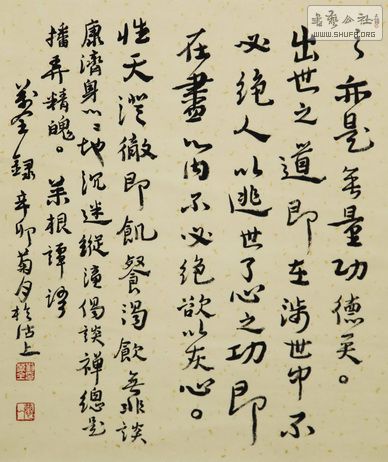 书艺公社
WWW.SHUFA.ORG
之亦是無量功德矣。
出世之道即在涉世中不
必絕人以逃世了心之功即
在盡心內不必絕欲以灰心。
性天澄徹即飢餐渴飲無非談
康濟身心〻地沉迷縱演偈談禪總是
播弄精魄。菜根譚語
錄辛卯菊月於滬上